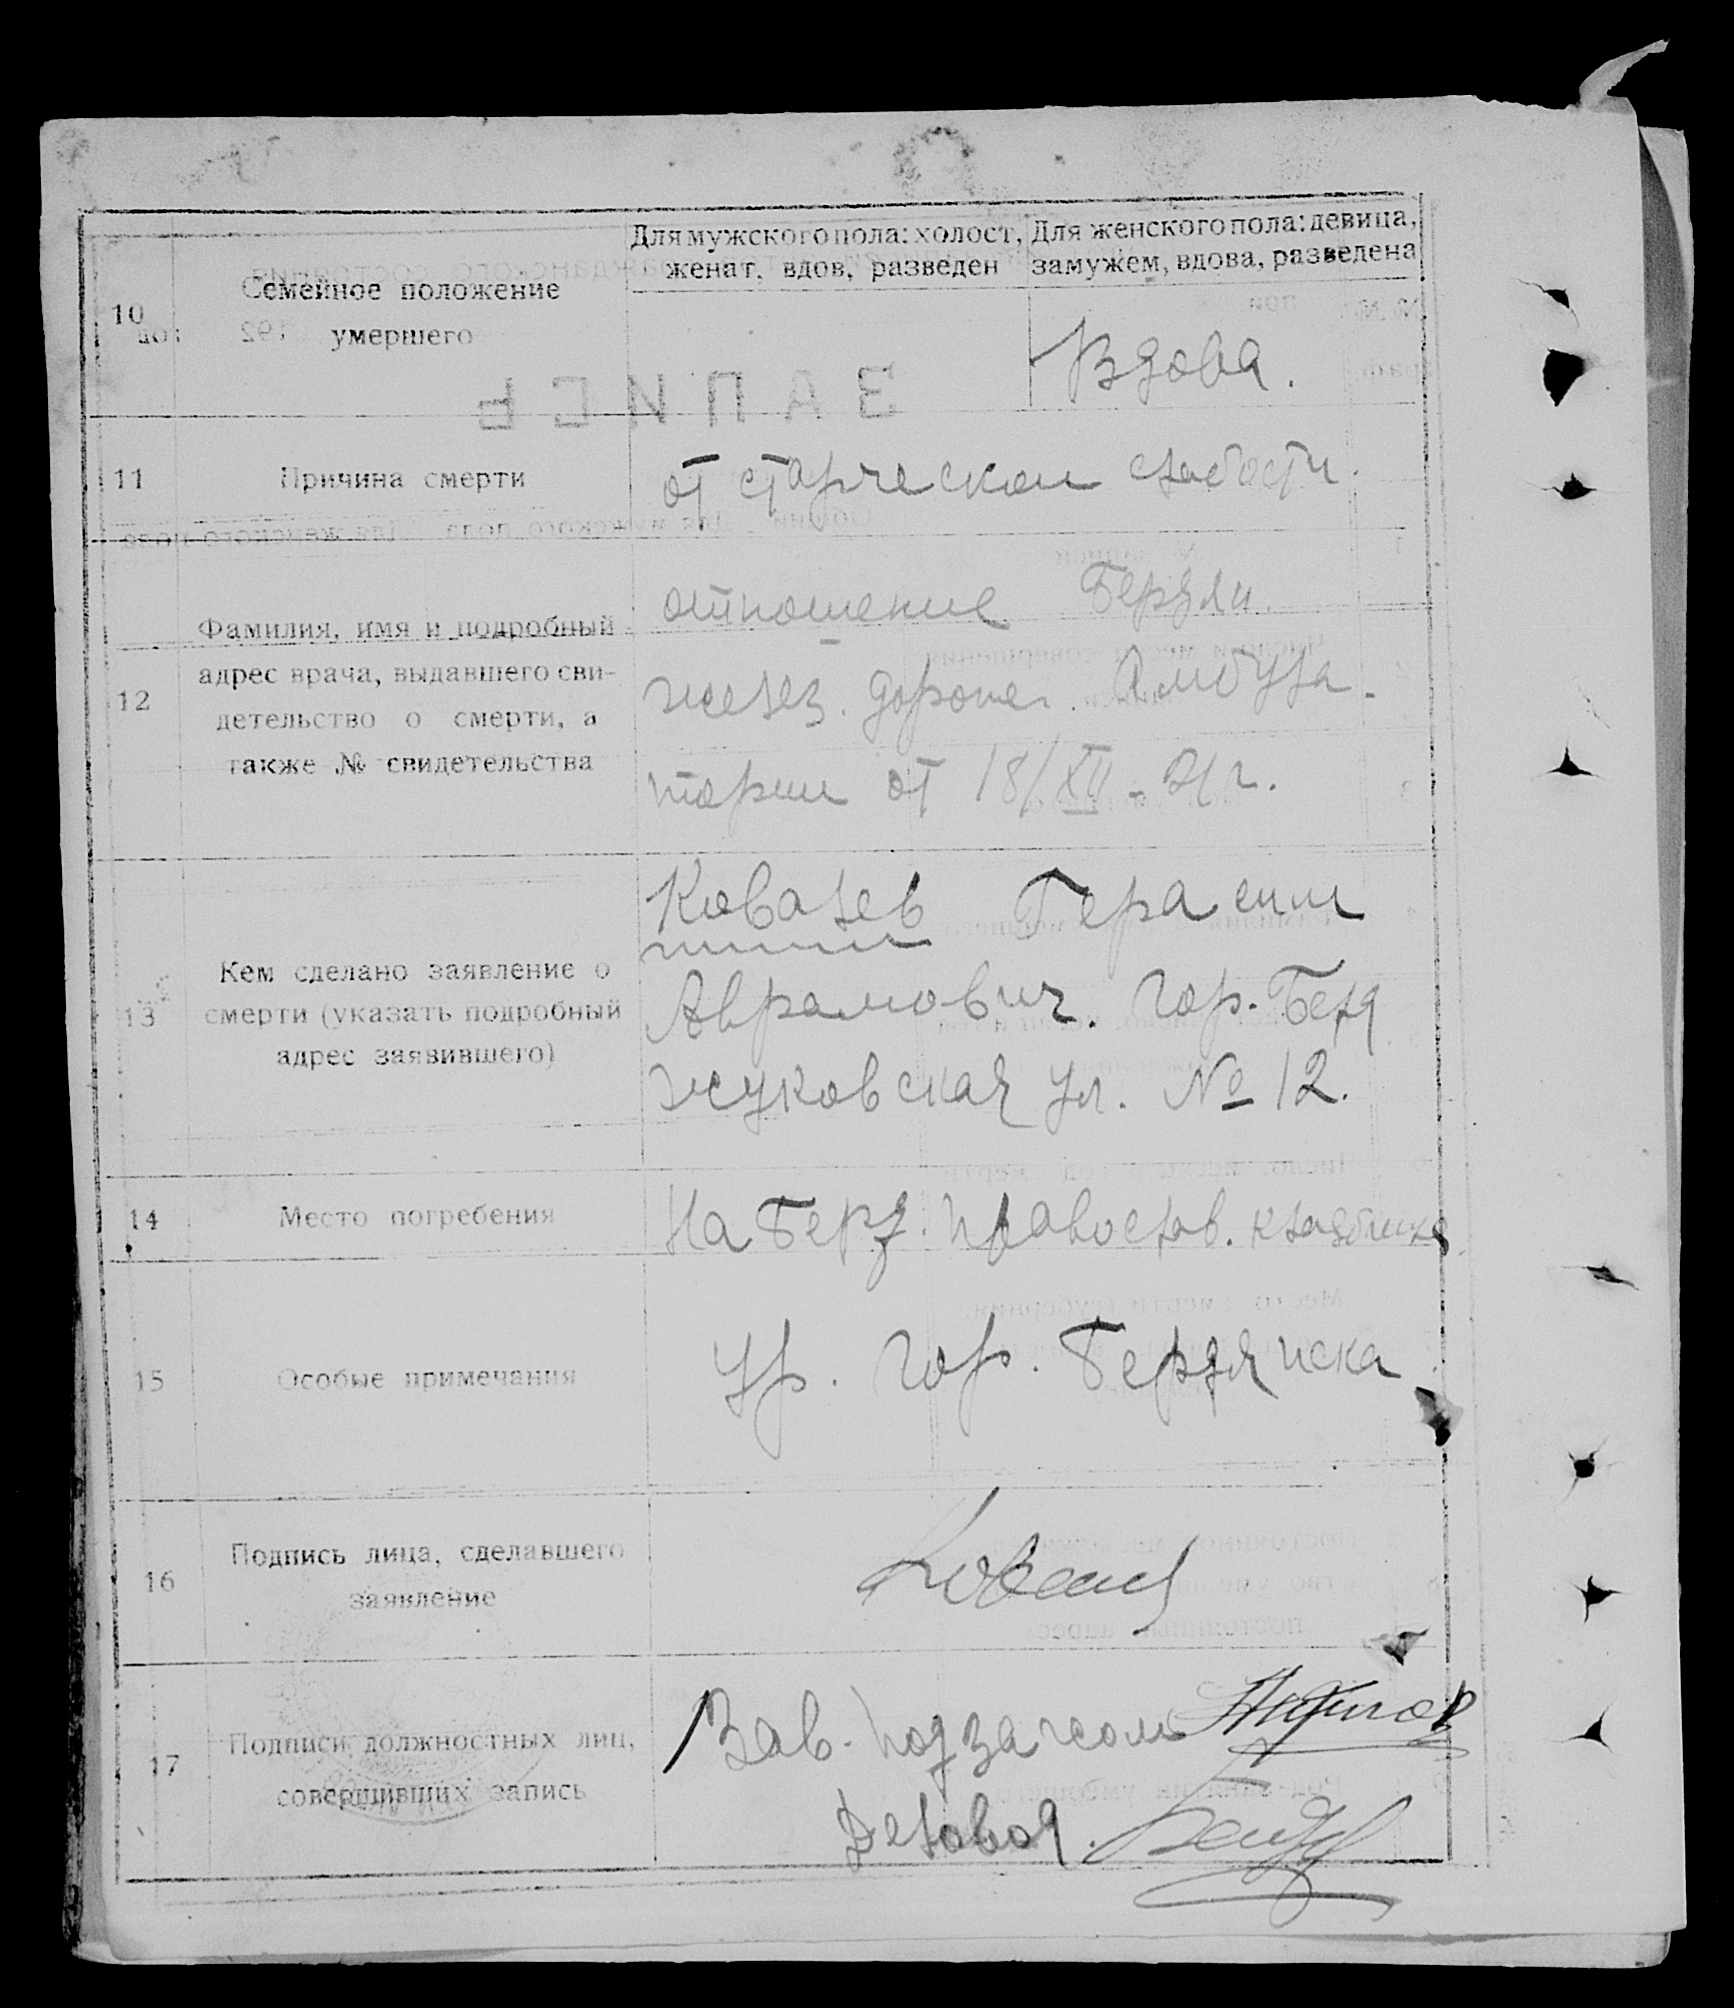 Для мужского пола: холост, женат, вдов, разведен
Для женского пола: девица, замужем, вдова, разведена
10 Семейное положение
умершего
Вдова.
ЗАПИСЬ
11 Причина смерти
от старческой слабости.
12 Фамилия, имя и подробный
адрес врача, выдавшего сви-
детельство о смерти, а
также № свидетельства
отношение Бердян.
желез. дорожн. Амбула-
тории от 18/XII-21г.
13 Кем сделано заявление о
смерти (указать подробный
адрес заявившего)
Ковалев Герасим
Аврамович. гор. Берд
жуковская ул. № 12.
14 Место погребения
На Берд. православ. кладбище
15 Особые примечания
Ур. гор. Бердянска
16 Подпись лица, сделавшего
заявление
17 Подписи должностных лиц,
совершивших запись
Зав. подзагсом
Деловод.